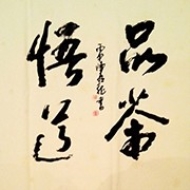 品茶
悟道